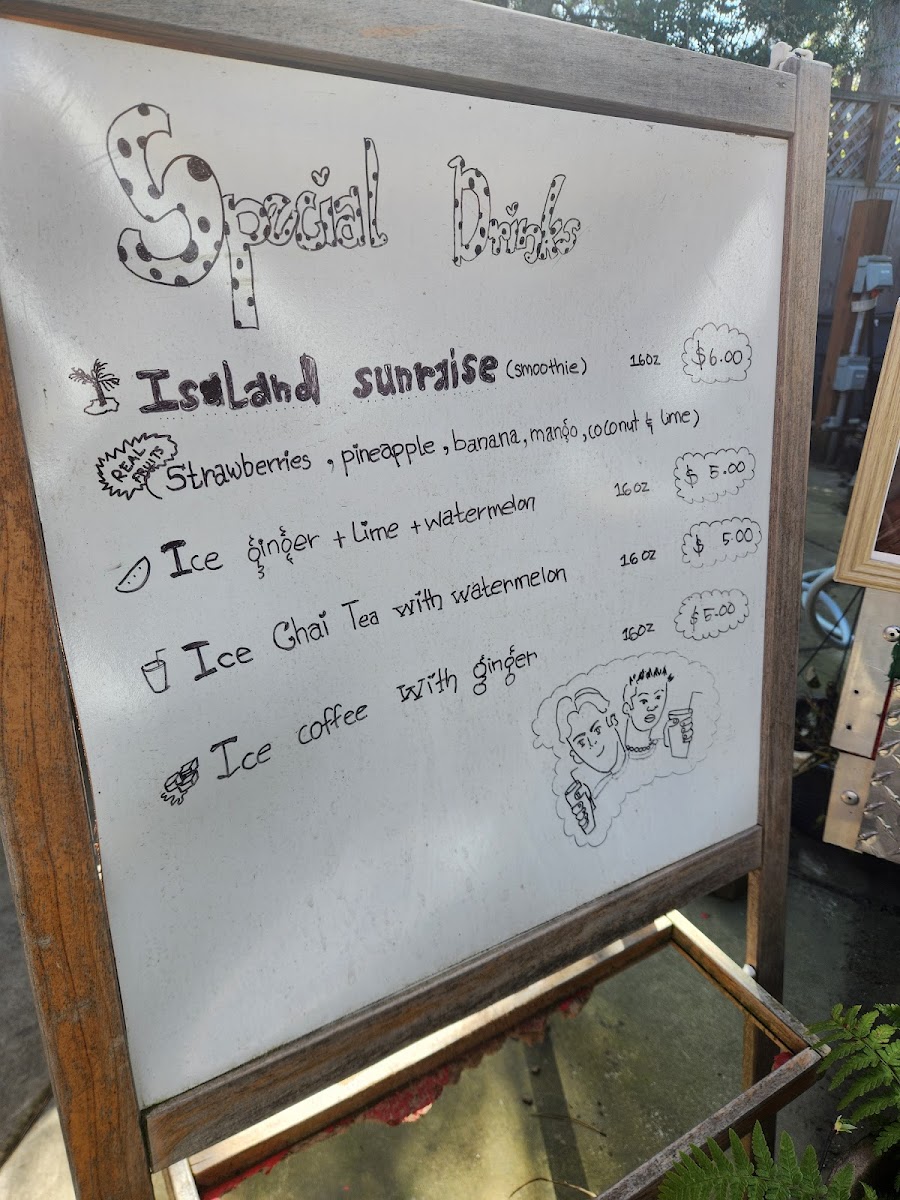 Special Drinks
Isaland sunraise (smoothie) 16oz $6.00
REAL FRUITS
(Strawberries, pineapple, banana, mango, coconut & lime)
Ice ginger + Lime + watermelon 16oz $ 5.00
Ice Chai Tea with watermelon 16oz $ 5.00
Ice coffee with ginger 16oz $5.00